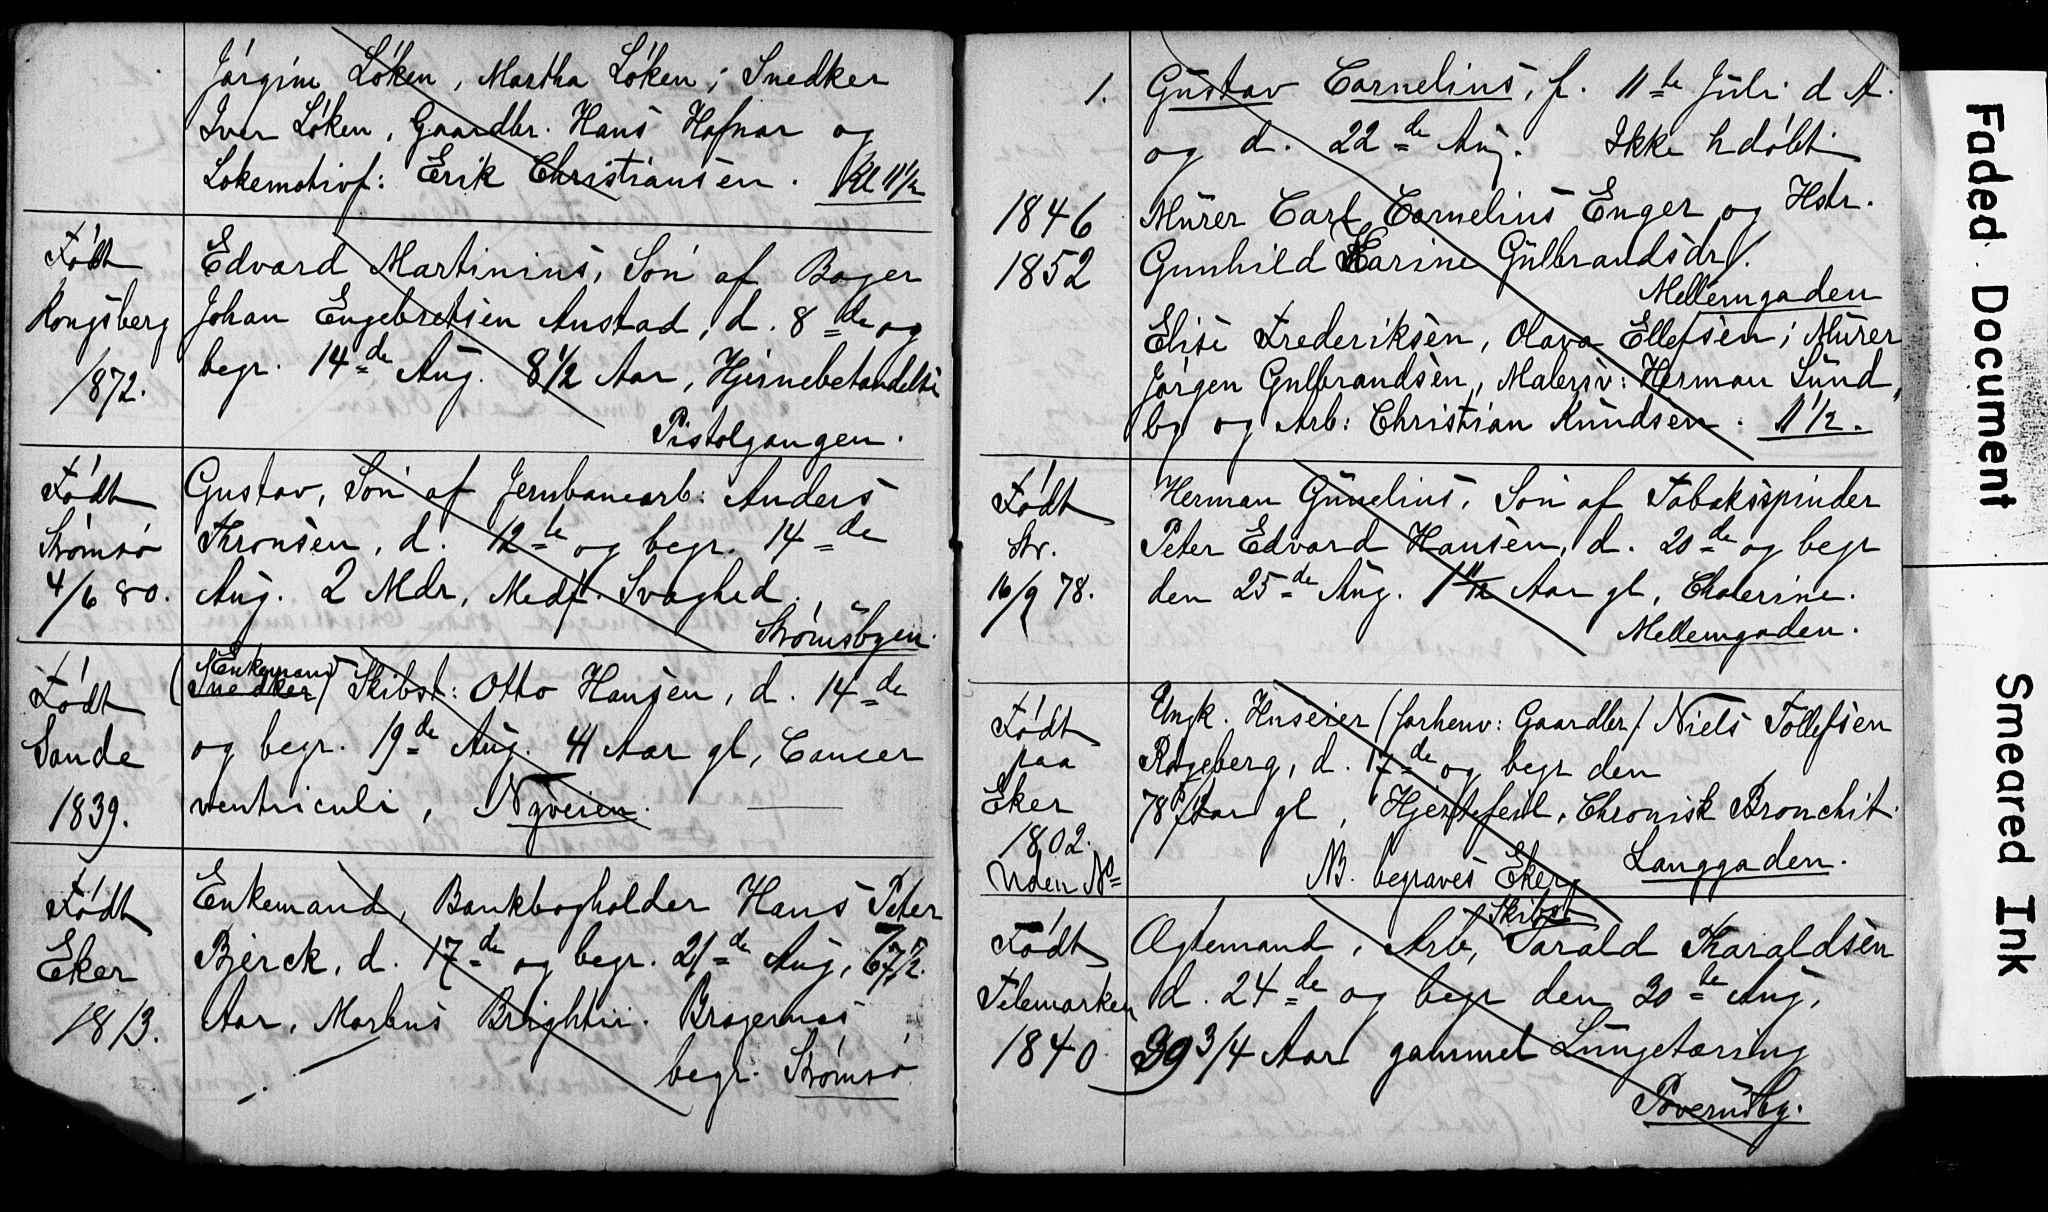 Jörgine Löken, Martha Löken; Snedker
Iver Löken, Gaardbr. Hans Hafnar og
Lokomotivf: Erik Christiansen. Kl 11 1/2
Født
Kongsberg
1872.
Edvard Martinius, Sön af Bager
Johan Engebretsen Anstad, d. 8de og
begr. 14de Aug. 8 1/2 Aar, Hjernebetændelse
Pistolgangen.
Født
Strømsø
4/6 80.
Gustav, Sön af Jernbanearb: Anders
Thronsen, d. 12te og begr. 14de
Aug. 2 Mdr, Medf. Svaghed.
Strømsbyen.
Født
Sande
1839.
Enkemand
(Snedker) Skibst: Otto Hansen, d. 14de
og begr. 19de Aug. 41 Aar gl, Cancer
ventriculi, Nyveien.
Født
Eker
1813.
Enkemand, Bankbogholder Hans Peter
Bjerck, d. 17de og begr. 21de Aug, 67 1/2
Aar, Morbus Brightii. Bragernæs
begr. Strømsø
1. Gustav Cornelius, f. 11te Juli d A.
og d. 22de Aug. Ikke hdöbt
1846 Murer Carl Cornelius Enger og Hstr.
1852 Gunhild Karine Gulbrandsdr/.
Mellemgaden
Elise Frederiksen, Olava Ellefsen; Murer
Jörgen Gulbrandsen, Malersv: Herman Sund,
by og Arb: Christian Knudsen. 11 1/2.
Født
Str.
16/9 78.
Herman Gunelius, Sön af Tobaksspinder
Peter Edvard Hansen, d. 20de og begr
den 25de Aug. 1 11/12 Aar gl, Cholerine.
Mellemgaden.
Født
paa
Eker
1802.
Uden No
Ungk. Huseier (forhenv: Gaardbr) Niels Tollefsen
Rogeberg, d. 17de og begr den
78 Aar gl, Hjertefeil, Chronisk Bronchit.
NB. begraves Eker, Langgaden.
Født
Telemarken
1840
Skibst
Ægtemand, Arb, Tarald Tharaldsen
d. 24de og begr den 30te Aug,
39 3/4 Aar gammel Lungetæring
Poverudby.
Faded Document
Smeared Ink